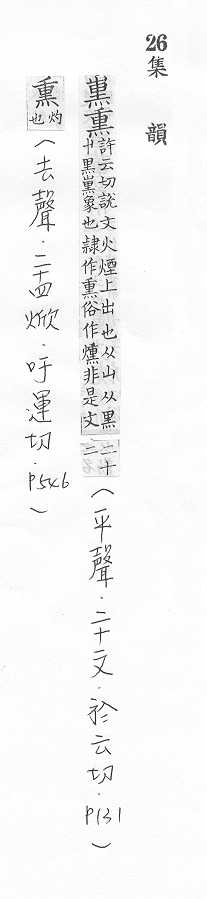 26
集韻
𤋱熏許云切說文火煙上出也从屮从黑屮黑熏象也隸作熏俗作燻非是文二十二(平聲.二十文.於云切.P131)
熏灼也(去聲.二十四焮.吁運切.P546)